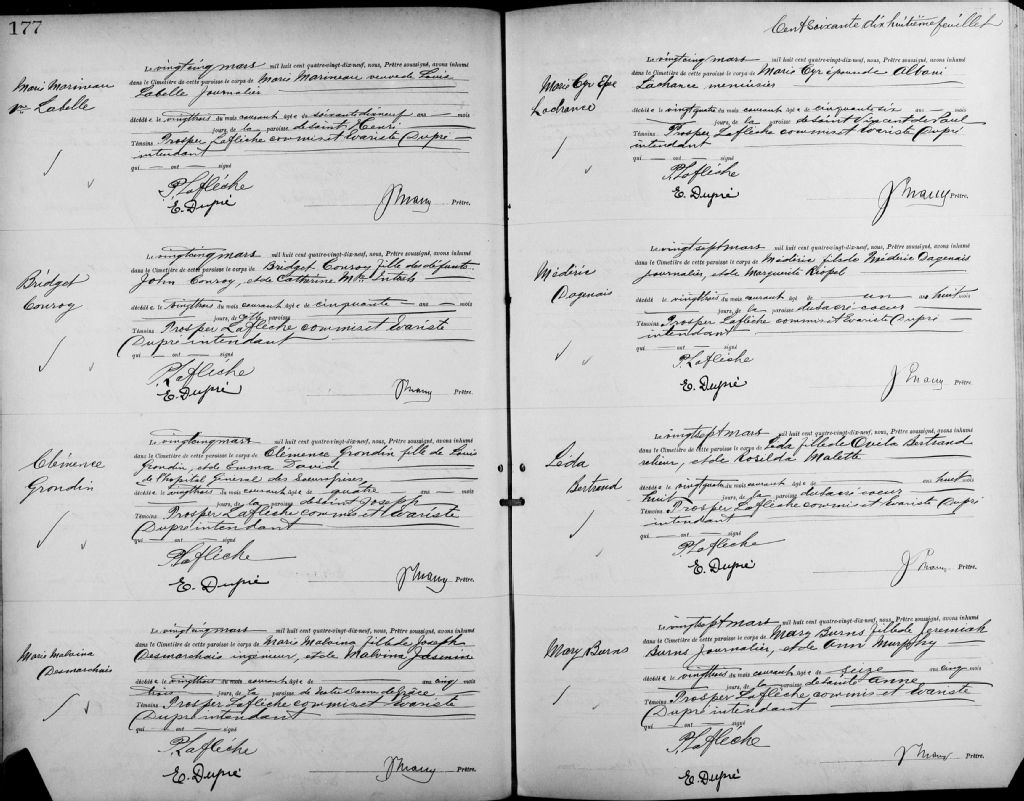 177
Marie Marineau
vve Labelle
Le vingt cinq mars mil huit cent quatre-vingt-dix-neuf, nous, Prêtre soussigné, avons inhumé
dans le Cimetière de cette paroisse le corps de Marie Marineau veuve de Louis
Labelle Journalier
décédé e le vingt trois du mois courant âgé e de soixante dix neuf ans — mois
— jours, de la paroisse de Saint Henri
Témoins Prosper Laflèche commis et Evariste Dupré
intendant
qui — ont — signé
P. Laflèche
E. Dupré
Prêtre.
Bridget
Conroy
Le vingt cinq mars mil huit cent quatre-vingt-dix-neuf, nous, Prêtre soussigné, avons inhumé
dans le Cimetière de cette paroisse le corps de Bridget Conroy, fille des défunts
John Conroy, et de Catherine
décédé e le vingt trois du mois courant âgé e de cinquante ans — mois
— jours, de paroisse
Témoins Prosper Laflèche commis et Evariste
Dupré intendant
qui — ont — signé
P. Laflèche
E. Dupré
Prêtre.
Clémence
Grondin
Le vingt cinq mars mil huit cent quatre-vingt-dix-neuf, nous, Prêtre soussigné, avons inhumé
dans le Cimetière de cette paroisse le corps de Clémence Grondin fille de Louis
Grondin, et de Emma David
de l'hopital Général des Soeurs grises
décédé e le vingt trois du mois courant âgé e de quatre ans — mois
— jours, de la paroisse de Saint Joseph
Témoins Prosper Laflèche commis et Evariste
Dupré intendant
qui — ont — signé
P. Laflèche
E. Dupré
Prêtre.
Marie Malvina
Desmarchais
Le vingt cinq mars mil huit cent quatre-vingt-dix-neuf, nous, Prêtre soussigné, avons inhumé
dans le Cimetière de cette paroisse le corps de Marie Malvina fille de Joseph
Desmarchais ingénieur, et de Malvina Jasmin
décédé e le vingt trois du mois courant âgé e de — ans cinq mois
trois jours, de la paroisse de Notre Dame de Grâce
Témoins Prosper Laflèche commis et Evariste
Dupré intendant
qui — ont — signé
P. Laflèche
E. Dupré
Prêtre.
Cent soixante dix huitième feuillet
Marie Cyr Epse
Lachance
Le vingt cinq mars mil huit cent quatre-vingt-dix-neuf, nous, Prêtre soussigné, avons inhumé
dans le Cimetière de cette paroisse le corps de Marie Cyr épouse de Albani
Lachance menuisier
décédé e le vingt quatre du mois courant âgé e de cinquante six ans — mois
— jours, de la paroisse de Saint Vincent de Paul
Témoins Prosper Laflèche commis et Evariste Dupré
intendant
qui — ont — signé
P. Laflèche
E. Dupré
Prêtre.
Médéric
Dagenais
Le vingt sept mars mil huit cent quatre-vingt-dix-neuf, nous, Prêtre soussigné, avons inhumé
dans le Cimetière de cette paroisse le corps de Médéric fils de Médéric Dagenais
journalier, et de Marguerite Riopel
décédé le vingt trois du mois courant âgé de un an huit mois
— jours, de la paroisse du Sacré-coeur
Témoins Prosper Laflèche commis et Evariste Dupré
intendant
qui — ont — signé
P. Laflèche
E. Dupré
Prêtre.
Léda
Bertrand
Le vingt sept mars mil huit cent quatre-vingt-dix-neuf, nous, Prêtre soussigné, avons inhumé
dans le Cimetière de cette paroisse le corps de Léda fille de Ovila Bertrand
relieur, et de Rosilda Malette
décédé e le vingt quatre du mois courant âgé e de — ans huit mois
huit jours, de la paroisse du Sacré coeur
Témoins Prosper Laflèche commis et Evariste Dupré
intendant
qui — ont — signé
P. Laflèche
E. Dupré
Prêtre.
Mary Burns
Le vingt sept mars mil huit cent quatre-vingt-dix-neuf, nous, Prêtre soussigné, avons inhumé
dans le Cimetière de cette paroisse le corps de Mary Burns fille de Jeremiah
Burns Journalier, et de Ann Murphy
décédé e le vingt trois du mois courant âgé e de seize ans cinq mois
— jours, de la paroisse de Sainte Anne
Témoins Prosper Laflèche commis et Evariste
Dupré intendant
qui — ont — signé
P. Laflèche
E. Dupré
Prêtre.